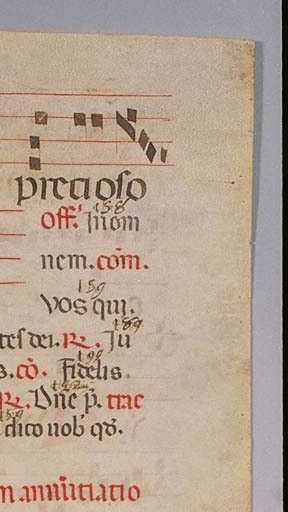 precioso
158
off. In om
nem. com.
159
vos qui.
189
tes dei. R. Iu
190
s. co. fidelis.
R. Dne p. trac
159
dico uob qd.
annuntiatio